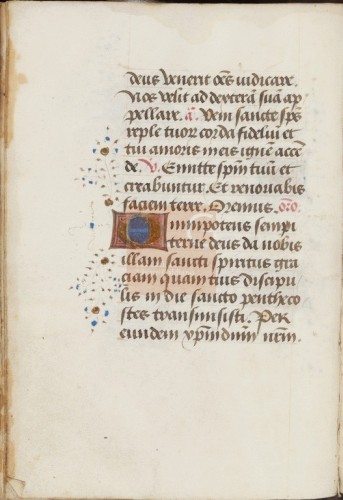 deus venerit oēs iudicare.
Nos velit ad dexterā suā ap
pellare. a. Veni sancte sp̄s
reple tuor̄ corda fideliū et
tui amoris meis ignē accē
de. V. Emitte sp̄m tuū et
creabuntur. Et renovabis
faciem terre. Oremus. oro.
Omnipotens sempi
terne deus da nobis
illam sancti spiritus gra
ciam quam tuis discipu
lis in die sancto pentheco
stes transmisisti. Per
eundem xp̄m dnm̄ nrm̄.